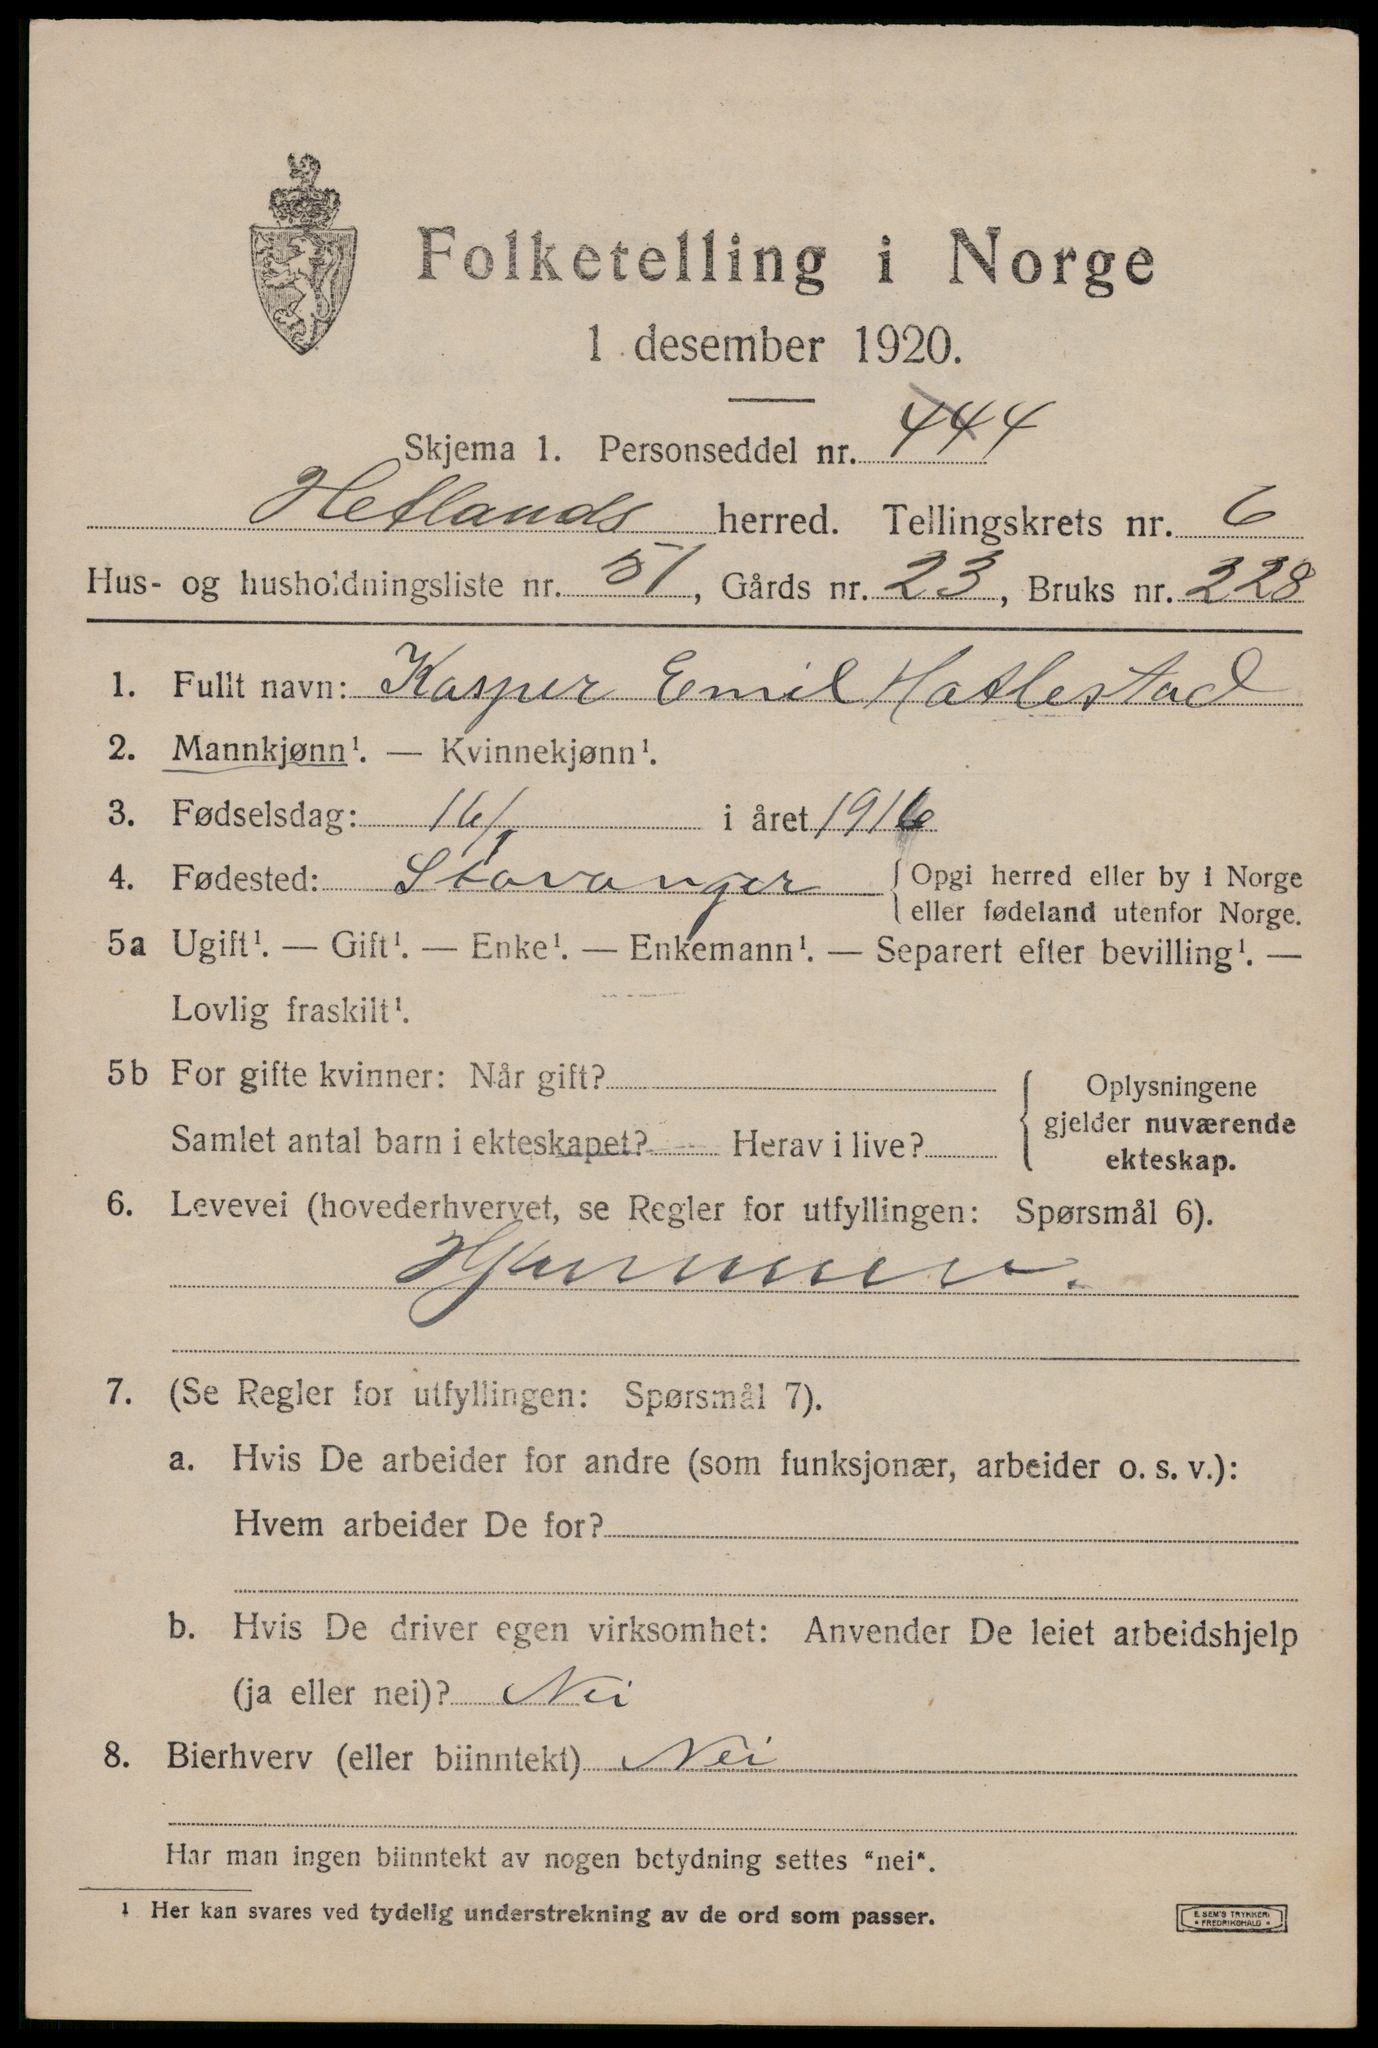 Folketelling i Norge
1 desember 1920.
Skjema 1. Personseddel nr. 444
Hetlands herred. Tellingskrets nr. 6
Hus- og husholdningsliste nr. 51, Gårds nr. 23, Bruks nr. 228
1. Fullt navn: Kasper Emil Hatlestad
2. Mannkjønn¹. — Kvinnekjønn¹.
3. Fødselsdag: 16/1 i året 1916
4. Fødested: Stavanger { Opgi herred eller by i Norge
eller fødeland utenfor Norge.
5a Ugift¹. — Gift¹. — Enke¹. — Enkemann¹. — Separert efter bevilling¹. —
Lovlig fraskilt¹.
5b For gifte kvinner: Når gift? { Oplysningene
gjelder nuværende
Samlet antal barn i ekteskapet? Herav i live? ekteskap.
6. Levevei (hovederhvervet, se Regler for utfyllingen: Spørsmål 6).
Hjemme.
7. (Se Regler for utfyllingen: Spørsmål 7).
a. Hvis De arbeider for andre (som funksjonær, arbeider o. s. v.):
Hvem arbeider De for?
b. Hvis De driver egen virksomhet: Anvender De leiet arbeidshjelp
(ja eller nei)? Nei
8. Bierhverv (eller biinntekt) Nei
Har man ingen biinntekt av nogen betydning settes "nei".
¹ Her kan svares ved tydelig understrekning av de ord som passer.
E. SEM'S TRYKKERI
• FREDRIKSHALD •